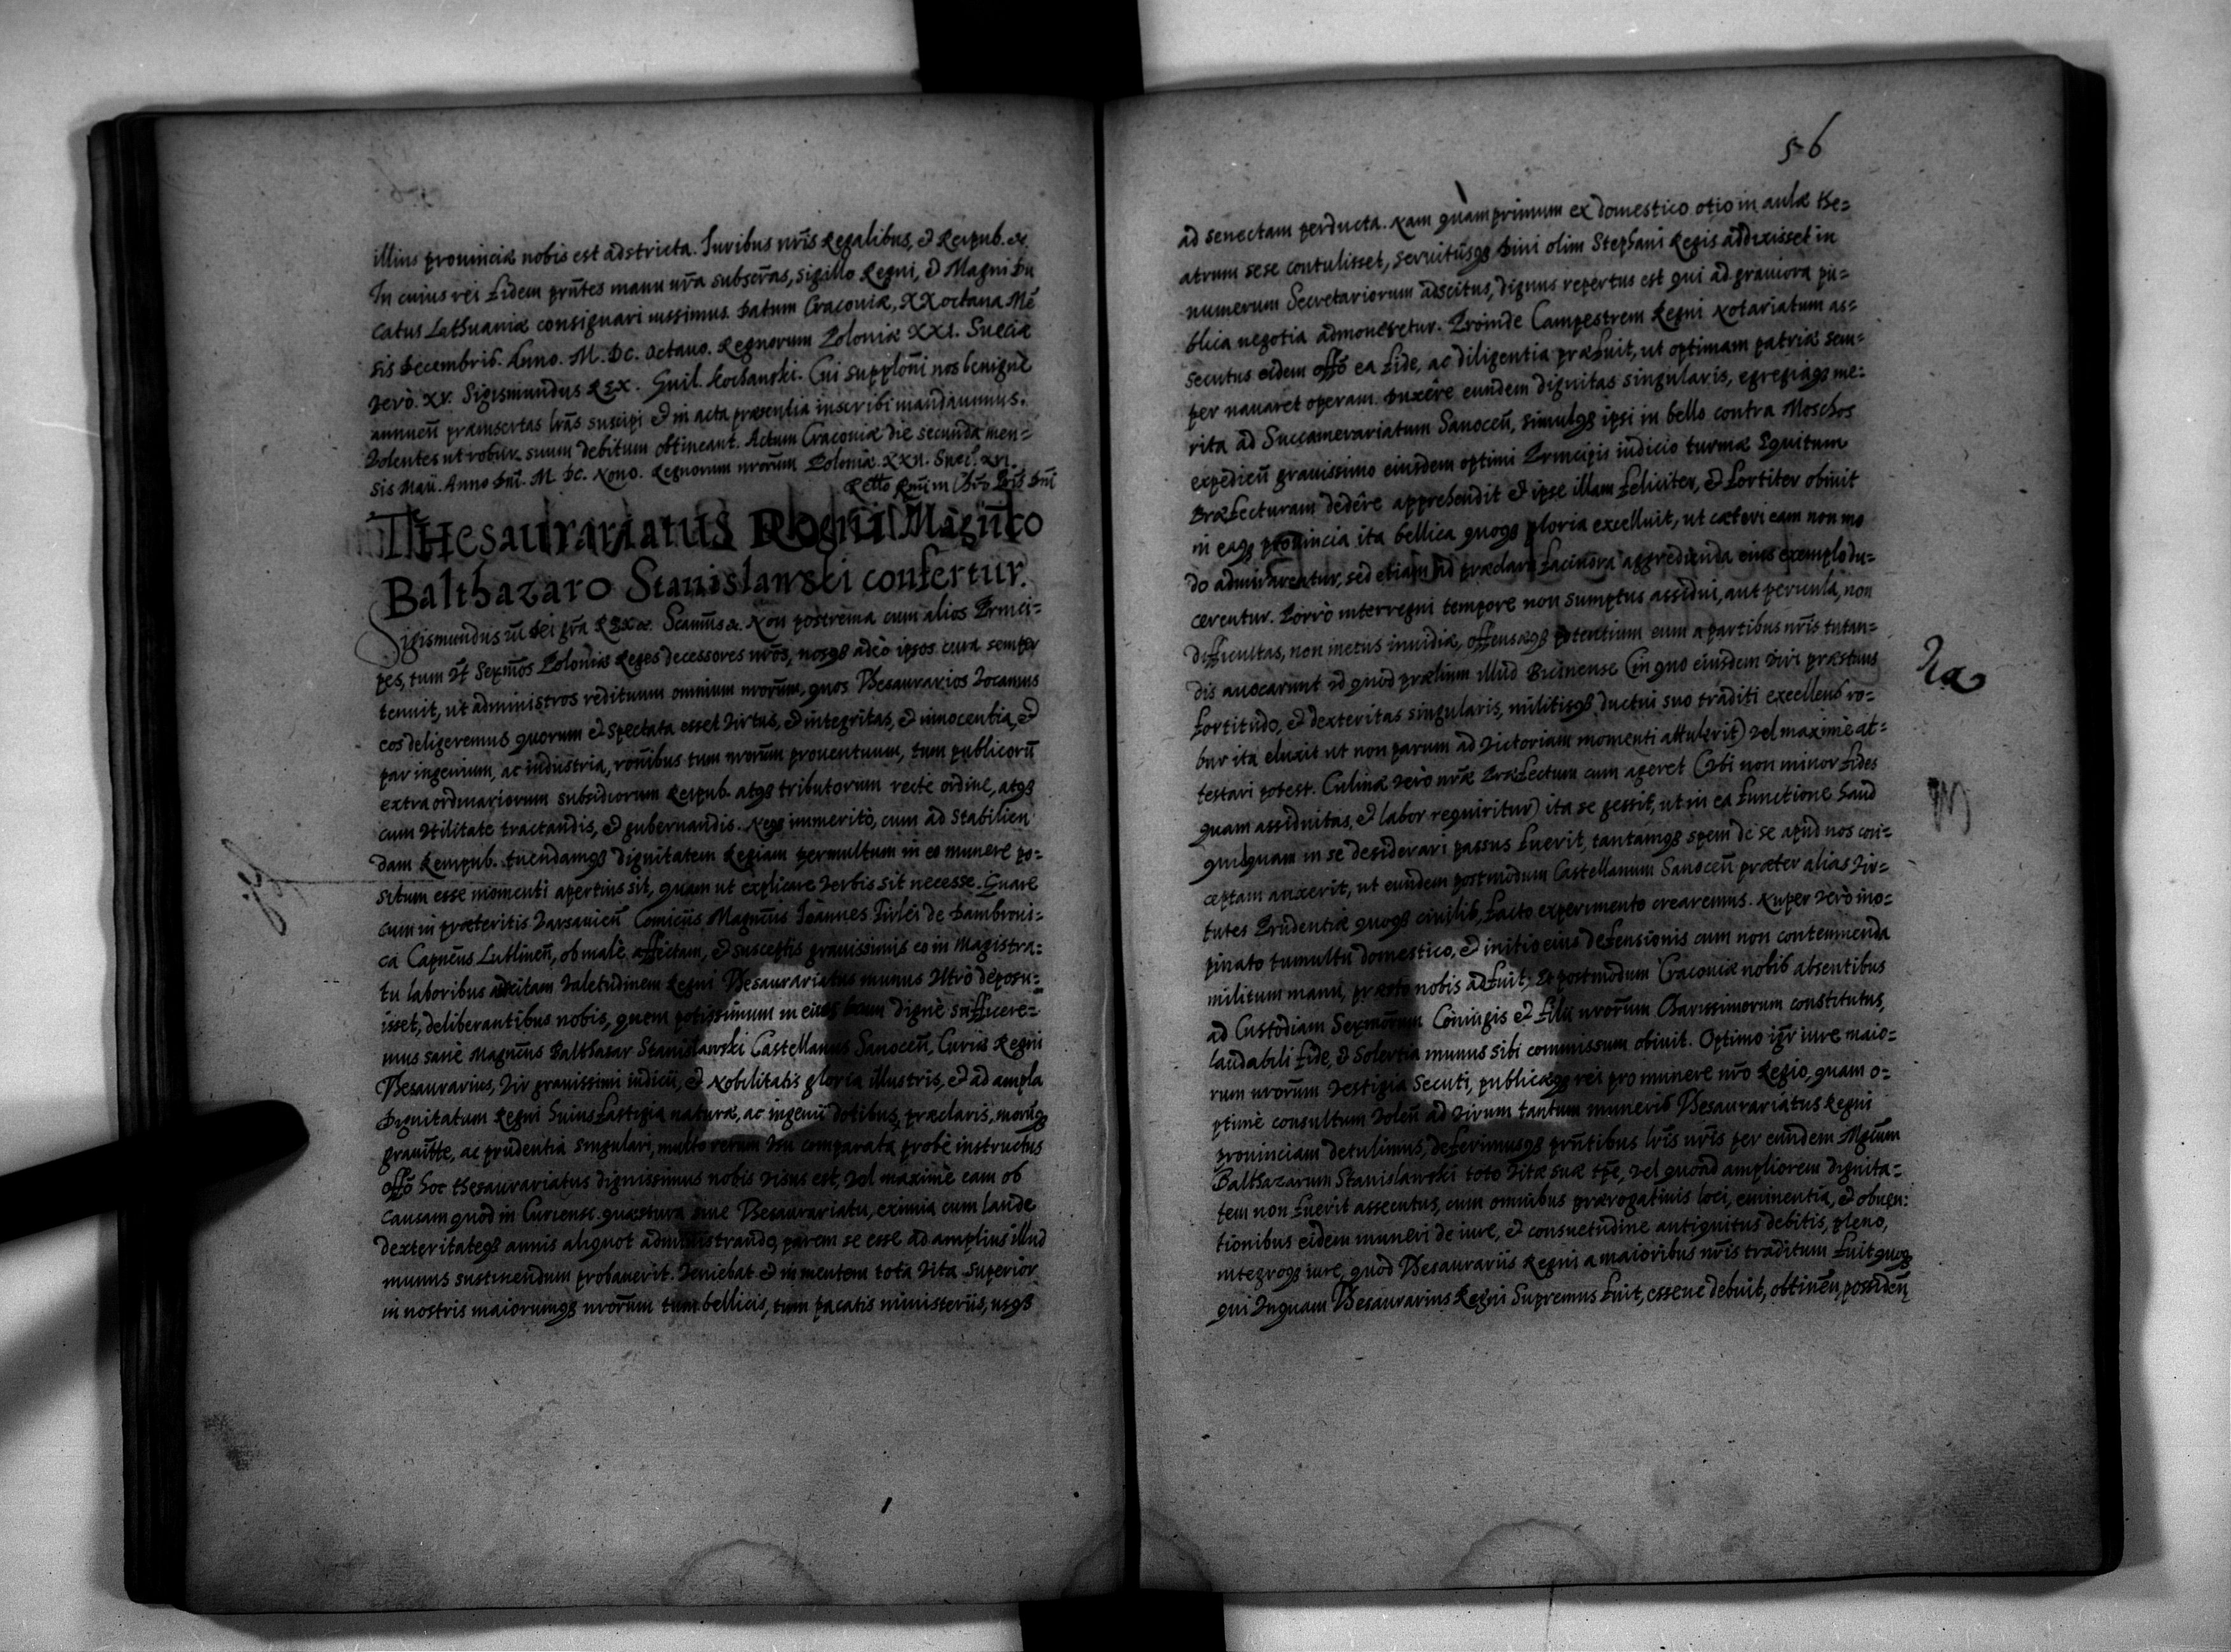 illius prouinciæ nobis est adstricta. Iuribus nr̃is Regalibus, et Reipub. &c
In cuius rei fidem pr̃ntes manu nr̃a subscr̃as, sigillo Regni, et Magni Du
catus Lethuaniæ consignari iussimus. Datum Cracouiæ, XX octaua Mẽ
sis Decembris. Anno. M. DC. octauo. Regnorum Poloniæ XXI. Sueciæ
verò. XV. Sigismundus REX. Guil. Kochanski. Cui supplõni nos benignè
annueñ præinsertas lr̃as suscipi et in acta præsentia inscribi mandauimus.
Volentes ut robur suum debitum obtineant. Actum Cracouiæ die secunda men=
sis Maii. Anno Dñi. M. DC. Nono. Regnorum nrorũm Poloniæ XXII. Suec: XVI.
THesaurariatus Regni Magñco
Balthazaro Stanislawski confertur.
Sigismundus III Dei gr̃a REX &c. Scamus &c. Non postrema cum alios Princi=
pes, tum vt Serm̃os Poloniæ Reges decessores nrõs, nosq3 adeò ipsos cura semper
tenuit, ut administros redituum omnium nrorũm, quos Thesaurarios vocamus
eos deligeremus quorum et spectata esset virtus, et integritas, et innocentia, et
par ingenium, ac industria, rõnibus tum nrorũm prouentuum, tum publicorũ
extraordinariorum subsidiorum Reipub. atq3 tributorum rectè ordine, atq3
cum vtilitate tractandis, et gubernandis. Neq3 immeritò, cum ad stabilien
dam Rempub. tuendamq3 dignitatem Regiam permultum in eo munere po=
situm esse momenti apertius sit, quam ut explicare verbis sit necesse. Quare
cum in præteritis Varsauieñ Comiciis Magñcus Ioannes Firlei de Dambroui=
ca Capnẽus Lublineñ, ob malè affectam, et susceptis grauissimis eo in Magistra=
tu laboribus attritam valetudinem Regni Thesaurariatus munus vltrò deposu=
isset, deliberantibus nobis, quem potissimum in eius locum dignè sufficere=
mus sanè Magñcus Balthasar Stanislawski Castellanus Sanoceñ, Curiæ Regni
Thesaurarius, vir grauissimi iudicii, et Nobilitatis gloria illustris, et ad ampla
Dignitatum Regni huius fastigia naturæ, ac ingenii dotibus, præclaris, morũq3
grauitte, ac prudentia singulari, multo rerum vsu comparata probè instructus
offõ hoc thesaurariatus dignissimus nobis visus est, vel maximè eam ob
causam quòd in Curiense quæstura siue Thesaurariatu, eximia cum laude
dexteritateq3 annis aliquot administrando, parem se esse ad amplius illud
munus sustinendum probauerit. Veniebat et in mentem tota vita superior
in nostris maiorumq3 nrorũm tum bellicis, tum pacatis ministeriis, usq3
56
ad senectam perducta. Nam quamprimum ex domestico otio in aulæ the=
atrum sese contulisset, seruitiisq3 Diui olim Stephani Regis addixisset in
numerum Secretariorum adscitus, dignus repertus est qui ad grauiora pu=
blica negotia admoueretur. Proinde Campestrem Regni Notariatum as=
secutus eidem offõ ea fide, ac diligentia præfuit, ut optimam patriæ sem=
per nauaret operam. Duxêre eundem dignitas singularis, egregiaq3 me=
rita ad Succamerariatum Sanoceñ, simulq3 ipsi in bello contra Moschos
expedieñ grauissimo eiusdem optimi Principis iudicio turmæ Equitum
Præfecturam dedêre apprehendit et ipse illam feliciter, et fortiter obiuit
in eaq3 prouincia ita bellica quoq3 gloria excelluit, ut cæteri eam non mo
do admirarentur, sed etiam ad præclara facinora aggredienda eius exemplo du=
cerentur. Porrò interregni tempore non sumptus assidui, aut pericula, non
difficultas, non metus inuidiæ, offensæq3 potentium eum a partibus nr̃is tutan=
dis auocarunt id quod prælium illud Bicinense (in quo eiusdem viri præstans
fortitudo, et dexteritas singularis, militisq3 ductui suo traditi excellens ro=
bur ita eluxit ut non parum ad victoriam momenti attulerit) vel maximè at=
testari potest. Culinæ verò nræ̃ Præfectum cum ageret (vbi non minor fides
quam assiduitas, et labor requiritur) ita se gessit, ut in ea functione haud
quicquam in se desiderari passus fuerit, tantamq3 spem de se apud nos con=
ceptam auxerit, ut eundem postmodum Castellanum Sanoceñ præter alias vir=
tutes Prudentiæ quoq3 ciuilis, facto experimento crearemus. Nuper verò ino=
pinato tumultu domestico, et initio eius defensionis cum non contemnenda
militum manu, præsto nobis adfuit, et postmodum Cracouiæ nobis absentibus
ad Custodiam Sermorũm Coniugis et filii nrorũm Charissimorum constitutus,
laudabili fide, et solertia munus sibi commissum obiuit. Optimo igr̃ iure maio=
rum nrorũm vestigia secuti, publicæq3 rei pro munere nrõ Regio, quam o=
ptimè consultum voleñ ad virum tantum muneris Thesaurariatus Regni
prouinciam detulimus, deferimusq3 pr̃ntibus lr̃is nr̃is per eundem Mgcũm
Balthazarum Stanislawski toto vitæ suæ tp̃e, vel quoad ampliorem dignita=
tem non fuerit assecutus, cum omnibus prærogatiuis loci, eminentia, et obuen:
tionibus eidem muneri de iure, et consuetudine antiquitus debitis, pleno,
integroq3 iure, quod Thesaurariis Regni a maioribus nr̃is traditum fuit quoq3
qui vnquam Thesaurarius Regni Supremus fuit, esseue debuit, obtineñ, possideñ